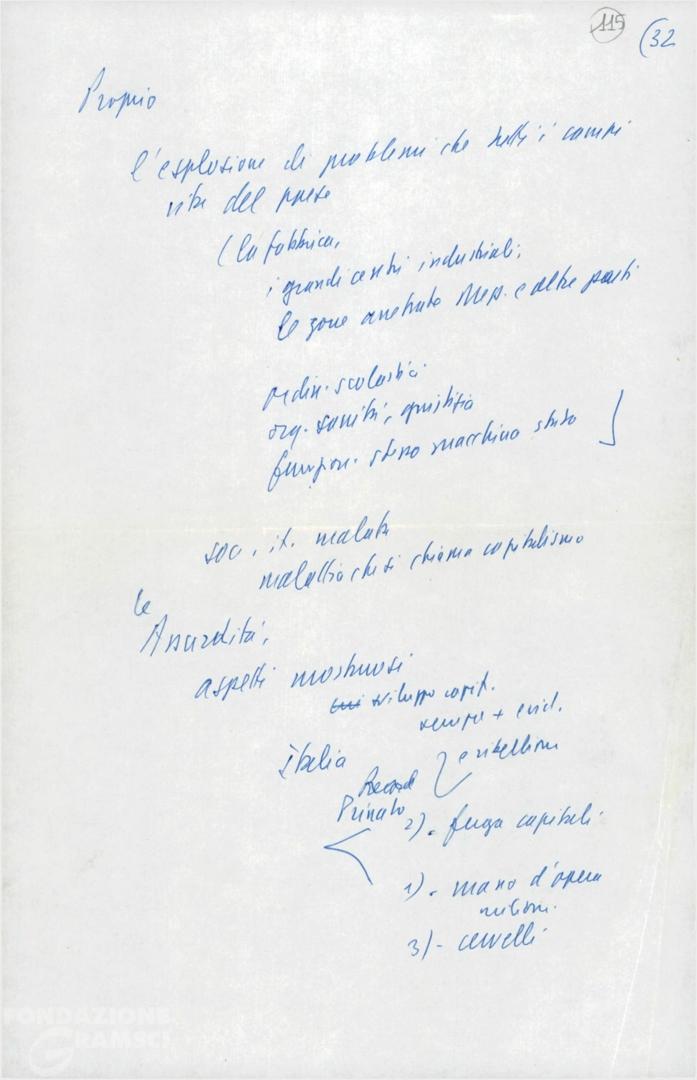 115
(32
Proprio
l'esplosione di problemi che tutti i campi
vita del paese
(la fabbrica,
i grandi centri industriali;
le zone arretrate Mer. e altre parti
ordin. scolastici
org. sanità, giustizia
funzion. stesso macchina stato
soc. it. malata
malattia che si chiama capitalismo
le
Assurdità,
aspetti mostruosi
sviluppo capit.
sempre + evid.
Italia
e ribellioni
Record
Primato
2). fuga capitali
1). mano d'opera
milioni.
3)- cervelli
FONDAZIONE
GRAMSCI